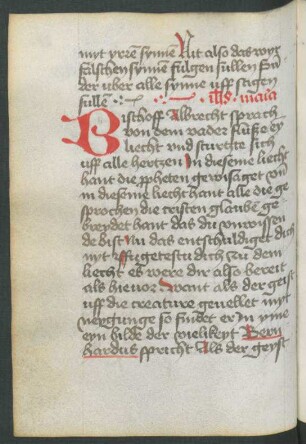 myt yrem synnen Nut also das wyr
falschen synnen fulgen sullen sun
der uber alle synne uff stigen
sullē ihs maria
Bischoff Albrecht sprach
von dem vader fluſze ey
liecht vnd sturtzte sich
uff alle hertzen In dieseme liecht
hant die ppheten gewisaget vnd
in dieseme liecht hant alle die ge
sprochen die cristen glauben ge
breydet hant das du vnwissen
de bist Nu das entschuldiget dich
nyt Fugetestu dich zcu dem
liecht es were dir also bereit
als hievor Want als der geist
uff die creature gevellet myt
neygunge so findet er in yme
eyn bilde der vielikeyt Bern
hardus spricht Als der geyst